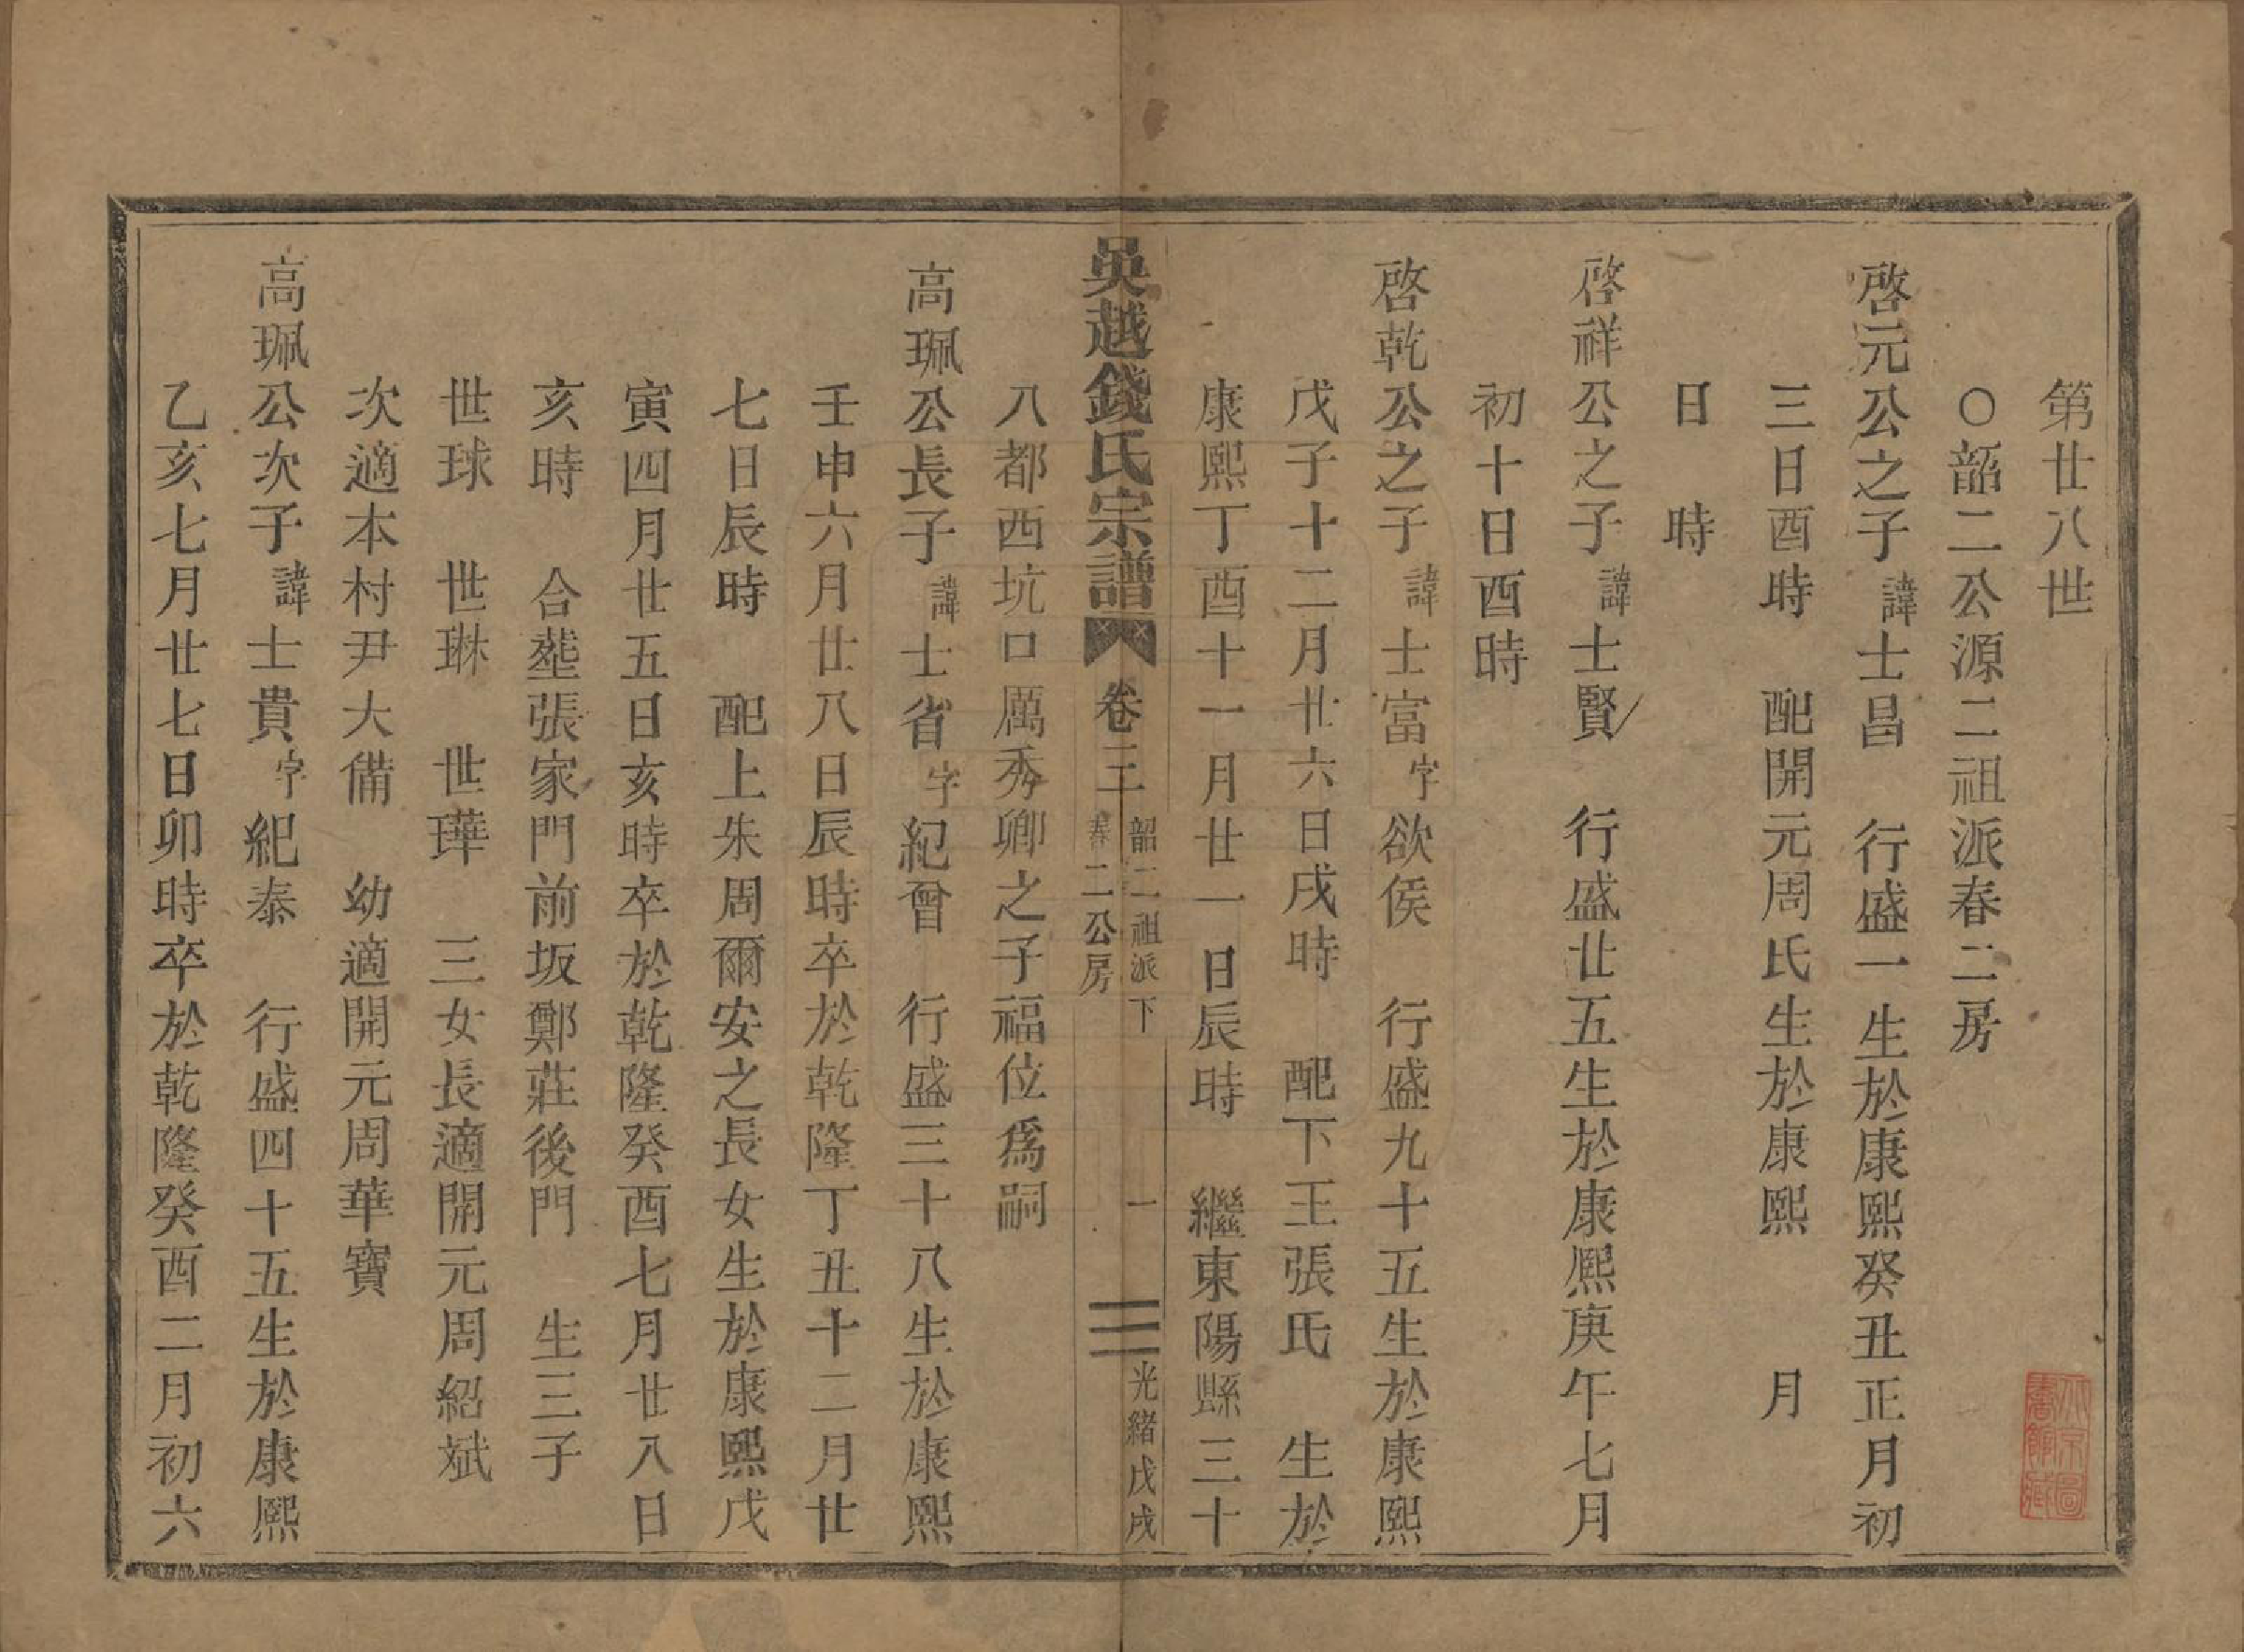 第廿八世
○韶二公源二祖派春二房
啓元公之子諱士昌　行盛一生於康熙癸丑正月初
三日酉時　配開元周氏生於康熙　　月
日　時
啓祥公之子諱士賢　行盛廿五生於康熙庚午七月
初十日酉時
啓乾公之子諱士富字欲侯　行盛九十五生於康熙
戊子十二月廿六日戌時　配下王張氏　生於
康熙丁酉十一月廿一日辰時　繼東陽縣三十
八都西坑口厲秀卿之子福位爲嗣
吳越錢氏宗譜
卷三
韶二祖派下
春二公房
一
光緒戊戌
高珮公長子諱士省字紀曾　行盛三十八生於康熙
壬申六月廿八日辰時卒於乾隆丁丑十二月廿
七日辰時　配上朱周爾安之長女生於康熙戊
寅四月廿五日亥時卒於乾隆癸酉七月廿八日
亥時　合塟張家門前坂鄭莊後門　生三子
世球　世琳　世瑾　三女長適開元周紹斌
次適本村尹大備　幼適開元周華寶
高珮公次子諱士貴字紀泰　行盛四十五生於康熙
乙亥七月廿七日卯時卒於乾隆癸酉二月初六